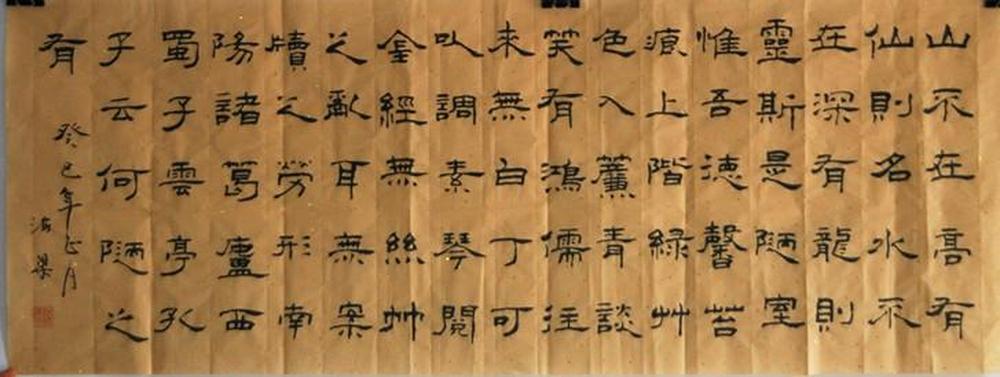 山不在高有
仙則名水不
在深有龍則
靈斯是陋室
惟吾德馨苔
痕上階綠艸
色入簾青談
笑有鴻儒往
来無白丁可
以調素琴閱
金經無絲竹
之亂耳無案
牘之勞形南
陽諸葛廬西
蜀子雲亭孔
子云何陋之
有
癸巳年正月